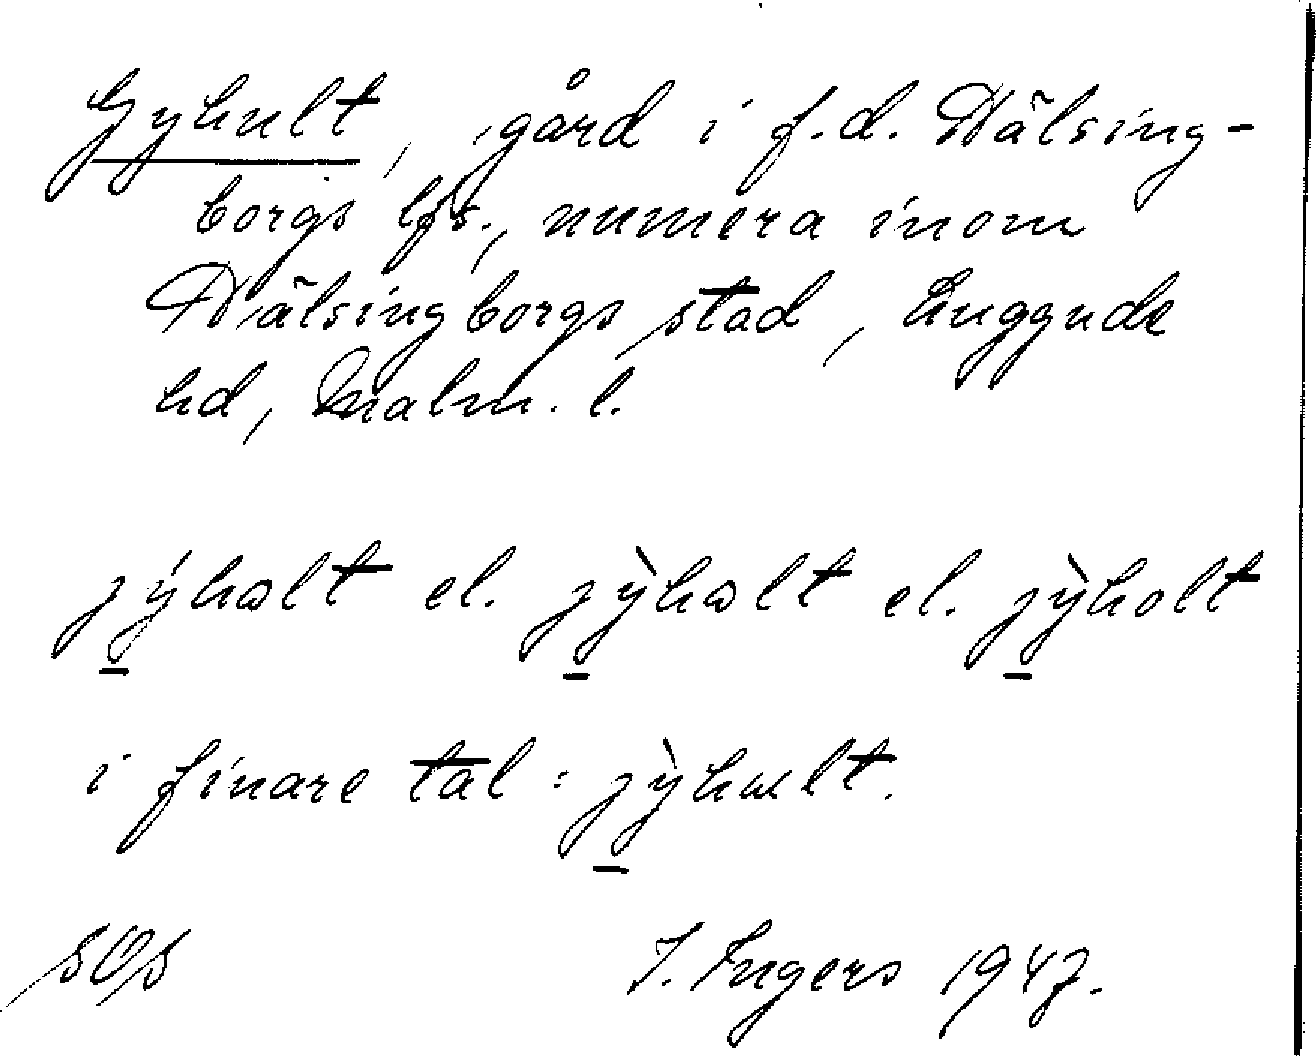 Gyhult, gård i f.d. Hälsing-
borgs lfs., numera inom
Hälsingborgs stad, Luggude
hd, Malm. l.
jý̱hωlt el. jỳ̱hωlt el. jỳ̱holt
i finare tal: jỳ̱hult.
I. Ingers 1947.